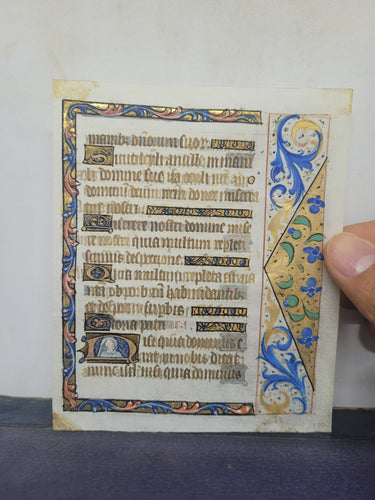 manibus dnorum suorum
Sicut oculi ancille in manib
us domine sue ita oculi nri ad
dominum deum nrm donec misereat
tur nostri
Miserere nostri domine mise
rere nostri quia multum repleti
sumus despectione
Quia multum repleta est ani
ma obprobrium habundantibus
et despectio superbis
Gloria patri
Nisi quia dominus e
rat in nobis dicat
nunc isrl nisi quia dominus